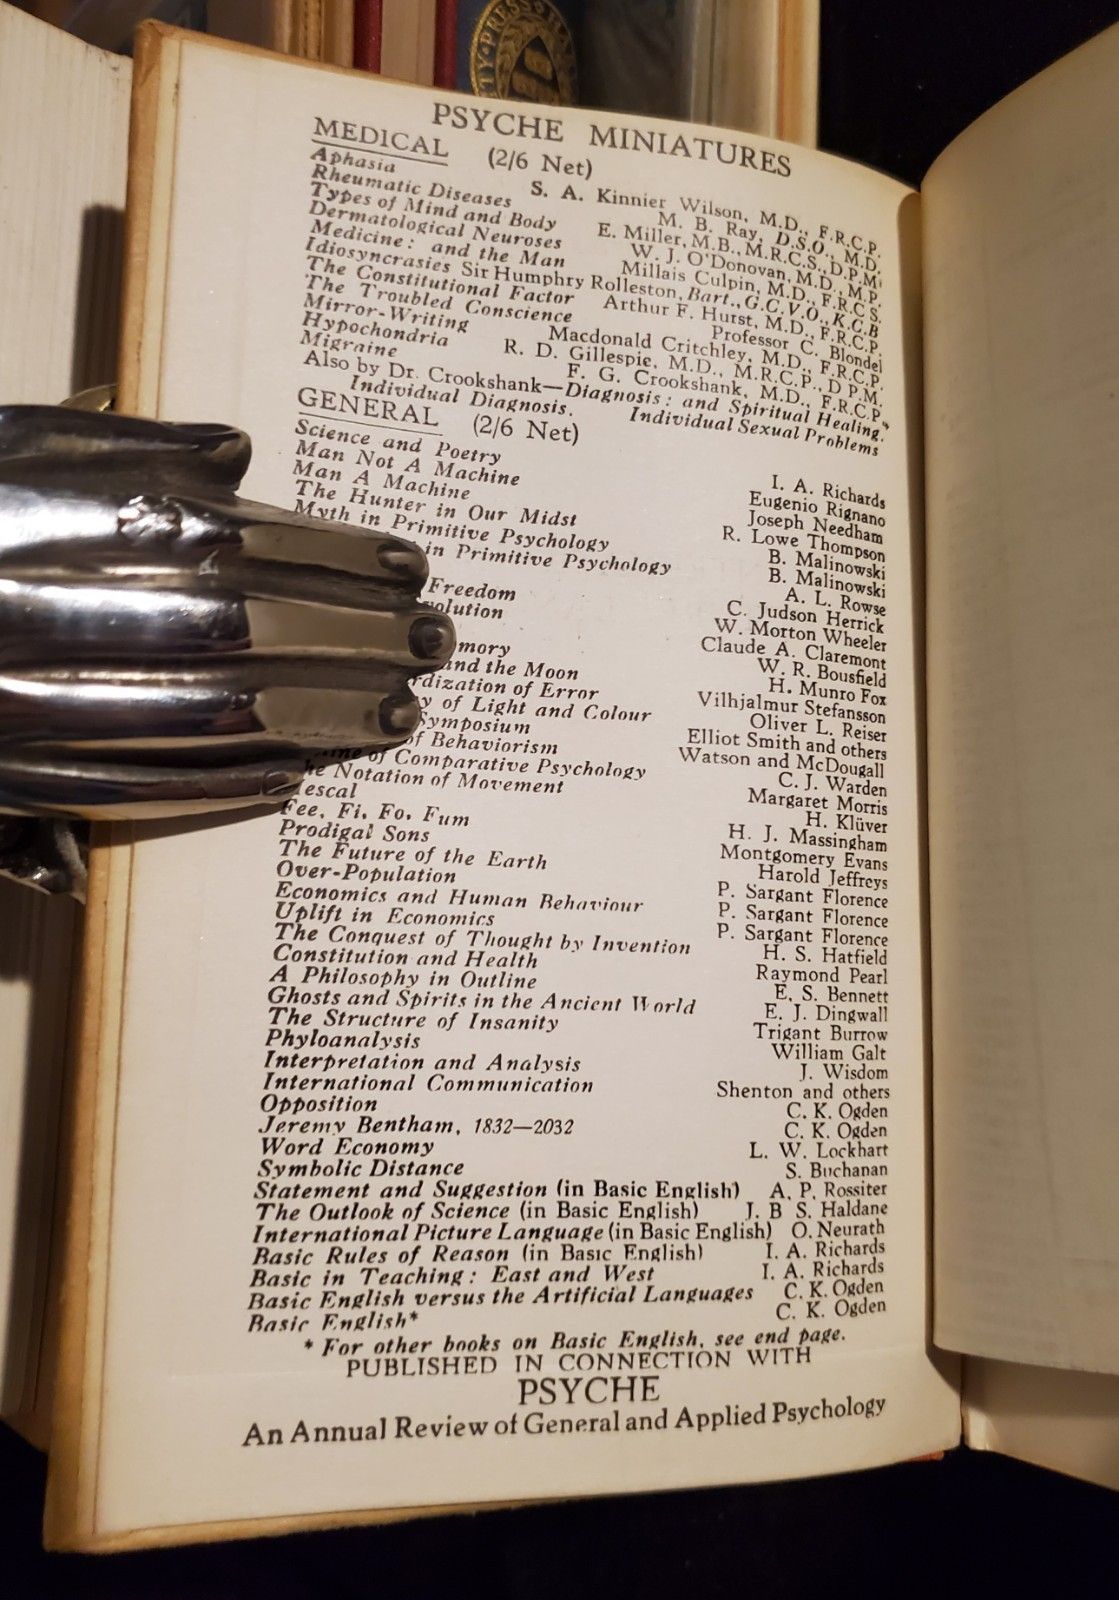 PRESS
PSYCHE MINIATURES
MEDICAL (2/6 Net)
Aphasia S. A. Kinnier Wilson, M.D., F.R.C.P.
Rheumatic Diseases M. B. Ray, D.S.O., M.D.
Types of Mind and Body E. Miller, M.B., M.R.C.S., D.P.M.
Dermatological Neuroses W. J. O'Donovan, M.D., M.P.
Medicine: and the Man Millais Culpin, M.D., F.R.C.S.
Idiosyncrasies Sir Humphry Rolleston, Bart., G.C.V.O., K.C.B
The Constitutional Factor Arthur F. Hurst, M.D., F.R.C.P.
The Troubled Conscience Professor C. Blondel
Mirror-Writing Macdonald Critchley, M.D., F.R.C.P.
Hypochondria R. D. Gillespie, M.D., M.R.C.P., D P.M.
Migraine F. G. Crookshank, M.D., F.R.C.P.
Also by Dr. Crookshank—Diagnosis: and Spiritual Healing.
Individual Diagnosis. Individual Sexual Problems
GENERAL (2/6 Net)
Science and Poetry I. A. Richards
Man Not A Machine Eugenio Rignano
Man A Machine Joseph Needham
The Hunter in Our Midst R. Lowe Thompson
Myth in Primitive Psychology B. Malinowski
in Primitive Psychology B. Malinowski
A. L. Rowse
Freedom C. Judson Herrick
volution W. Morton Wheeler
Claude A. Claremont
mory W. R. Bousfield
and the Moon H. Munro Fox
rdization of Error Vilhjalmur Stefansson
y of Light and Colour Oliver L. Reiser
Symposium Elliot Smith and others
of Behaviorism Watson and McDougall
of Comparative Psychology C. J. Warden
he Notation of Movement Margaret Morris
Mescal H. Klüver
Fee, Fi, Fo, Fum H. J. Massingham
Prodigal Sons Montgomery Evans
The Future of the Earth Harold Jeffreys
Over-Population P. Sargant Florence
Economics and Human Behaviour P. Sargant Florence
Uplift in Economics P. Sargant Florence
The Conquest of Thought by Invention H. S. Hatfield
Constitution and Health Raymond Pearl
A Philosophy in Outline E. S. Bennett
Ghosts and Spirits in the Ancient World E. J. Dingwall
The Structure of Insanity Trigant Burrow
Phyloanalysis William Galt
Interpretation and Analysis J. Wisdom
International Communication Shenton and others
Opposition C. K. Ogden
Jeremy Bentham, 1832—2032 C. K. Ogden
Word Economy L. W. Lockhart
Symbolic Distance S. Buchanan
Statement and Suggestion (in Basic English) A. P. Rossiter
The Outlook of Science (in Basic English) J. B S. Haldane
International Picture Language (in Basic English) O. Neurath
Basic Rules of Reason (in Basic English) I. A. Richards
Basic in Teaching: East and West I. A. Richards
Basic English versus the Artificial Languages C. K. Ogden
Basic English* C. K. Ogden
* For other books on Basic English, see end page.
PUBLISHED IN CONNECTION WITH
PSYCHE
An Annual Review of General and Applied Psychology